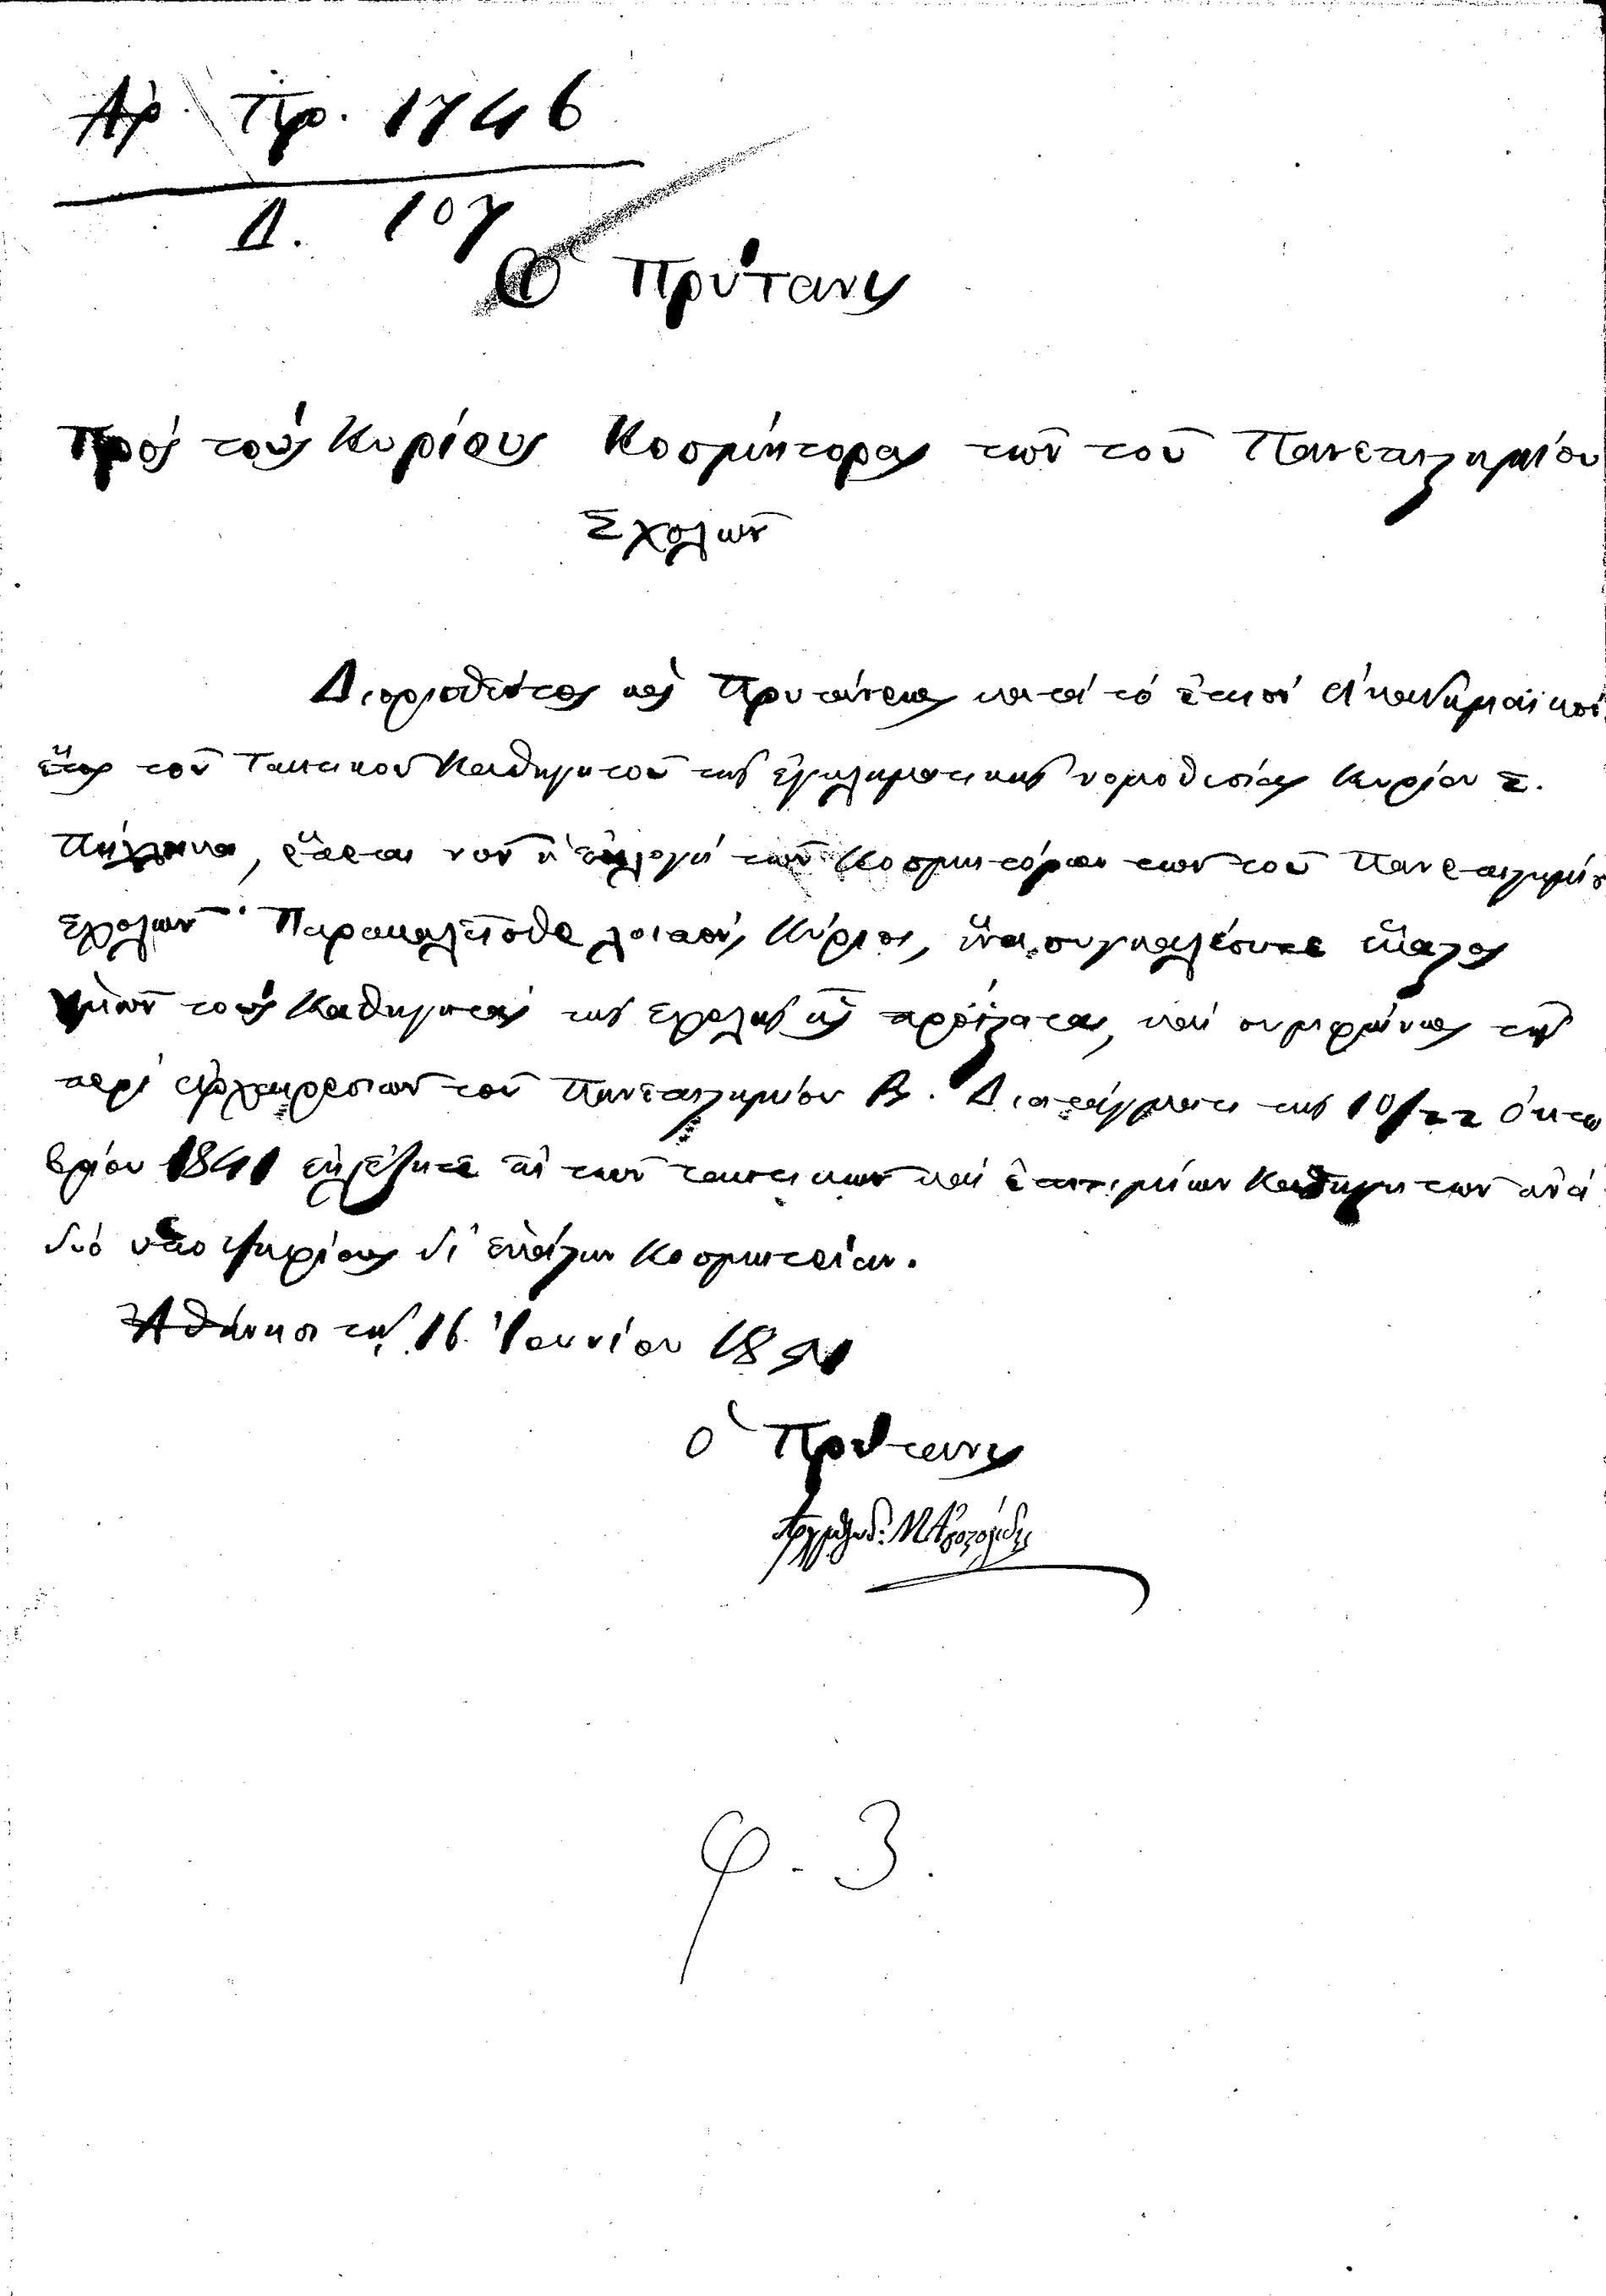 Αρ. Πρ. 1746
Δ. 107
Ὁ Πρύτανις
Πρὸς τοὺς Κυρίους Κοσμήτορας τῶν τοῦ Πανεπιστημίου
Σχολῶν
Διορισθέντος ὡς Πρυτάνεως κατὰ τὸ ἐπιὸν ἀκαδημαϊκὸν
ἔτος τοῦ Τακτικοῦ Καθηγητοῦ τῆς ἐγκληματικῆς νομοθεσίας Κυρίου Σ.
Πήλληκα, ἕπεται νῦν ἡ ἐκλογὴ τῶν Κοσμητόρων τῶν τοῦ Πανεπιστημίου
Σχολῶν. Παρακαλεῖσθε λοιπόν, Κύριοι, ἵνα συγκαλέσητε ἕκαστος
ὑμῶν τοὺς Καθηγητὰς τῆς Σχολῆς ἧς προΐσταται, καὶ συμφώνως τῷ
περὶ ἀρχαιρεσιῶν τοῦ Πανεπιστημίου Β. Διατάγματι τῆς 10/22 Ὀκτω
βρίου 1841 ἐκλέξητε ἐκ τῶν τακτικῶν καὶ ἐπιτιμίων Καθηγητῶν ἀνὰ
δύο ὑποψηφίους δι' ἑκάστην Κοσμητείαν.
Ἀθήνησι τῇ 16 Ἰουνίου 1851
Ὁ Πρύτανις
Μ. Ἀποστολίδης
φ. 3.